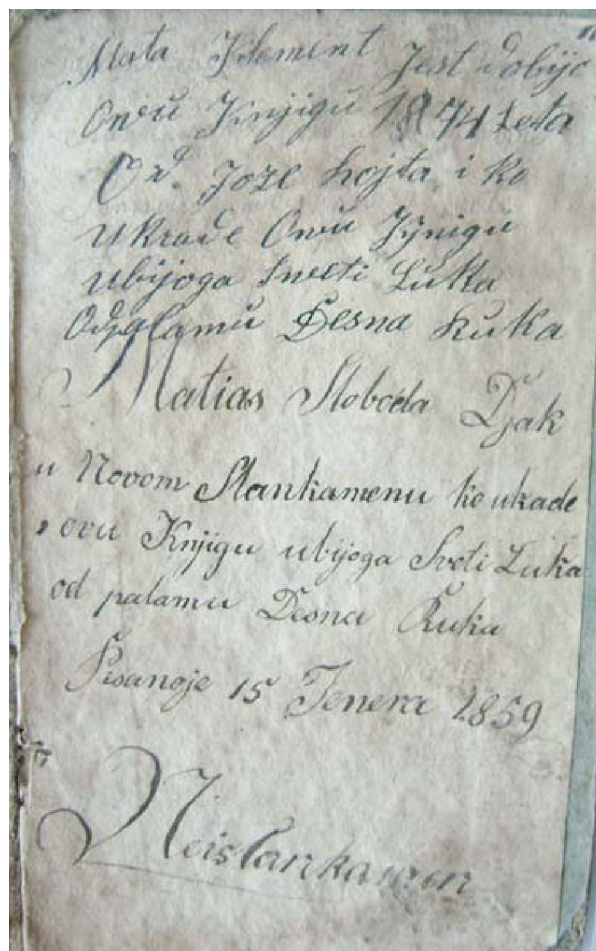 Mata Klement Jest dobijo
Ovu Knjigu 1874 Leta
Od. Joze hojta i ko
ukrade Ovu Kjnigu
ubijoga Sveti Luka
Odpalamu Desna Ruka
Matias Sloboda Djak
u Novom Slankamenu ko ukade
ovu Knjigu ubijoga Sveti Luka
od palamu Desna Ruka
Pisanoje 15 Jenera 1859
Neislankamen